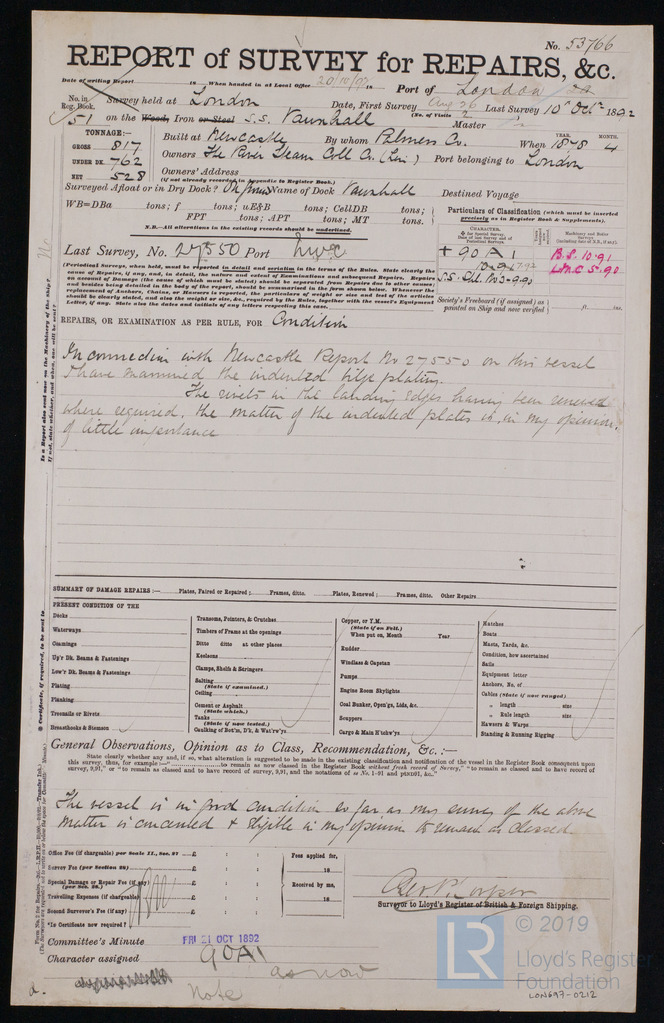 No. 53766
REPORT of SURVEY for REPAIRS, &c.
Date of writing Report 18 When handed in at Local Office 18 Port of London
No. in Reg. Book. Survey held at London Date, First Survey Aug 26 Last Survey 10th Octr 1892
(No. of Visits 2)
51 on the Wood, Iron or Steel S.S. Vauxhall Master
TONNAGE:—
GROSS 817
UNDER DK. 762
NET 528
Built at Newcastle By whom Palmers Co. When 1878 4
YEAR. MONTH.
Owners The River Steam Coll Co. (Lim) Port belonging to London
Owners' Address
(if not already recorded in Appendix to Register Book.)
Surveyed Afloat or in Dry Dock? Name of Dock Vauxhall Destined Voyage
WB=DBa tons; f tons; uE&B tons; CellDB tons;
FPT tons; APT tons; MT tons.
N.B.—All alterations in the existing records should be underlined.
Particulars of Classification (which must be inserted precisely as in Register Book & Supplements).
CHARACTER.
+ 90 A 1
10.91
S.S. No 3-9.90
B.S. 10.91
LMC 5.90
Last Survey, No. 27550 Port Nwc
(Periodical Surveys, when held, must be reported in detail and seriatim in the terms of the Rules. State clearly the cause of Repairs, if any, and, in detail, the nature and extent of Examinations and subsequent Repairs. Repairs on account of Damage (the cause of which must be stated) should be separated from Repairs due to other causes; and besides being detailed in the body of the report, should be summarised in the form shewn below. Whenever the replacement of Anchors, Chains, or Hawsers is reported, the particulars of weight or size and test of the articles should be clearly stated, and also the weight or size, &c., required by the Rules, together with the vessel's Equipment Letter, if any. State also the dates and initials of any letters respecting this case.
Society's Freeboard (if assigned) as painted on Ship and now verified ft. ins.
REPAIRS, OR EXAMINATION AS PER RULE, FOR Condition
In connection with Newcastle Report No 27550 on this vessel
I have examined the indented bilge plating.
The rivets in the landing edges having been renewed
where required, the matter of the indented plates is, in my opinion,
of little importance
SUMMARY OF DAMAGE REPAIRS:— Plates, Faired or Repaired; Frames, ditto. Plates, Renewed; Frames, ditto. Other Repairs
PRESENT CONDITION OF THE
Decks
Waterways
Coamings
Up'r Dk. Beams & Fastenings
Low'r Dk. Beams & Fastenings
Plating
Planking
Treenails or Rivets
Breasthooks & Stemson
Transoms, Pointers, & Crutches
Timbers of Frame at the openings
Ditto ditto at other places
Keelsons
Clamps, Shelfs & Stringers
Salting
(State if examined.)
Ceiling
Cement or Asphalt
(State which.)
Tanks
(State if now tested.)
Caulking of Bot'm, D'k, & Wat'rw'ys
Copper, or Y.M.
(State if on Felt.)
When put on, Month Year
Rudder
Windlass & Capstan
Pumps
Engine Room Skylights
Coal Bunker, Open'gs, Lids, &c.
Scuppers
Cargo & Main H'tchw'ys
Hatches
Boats
Masts, Yards, &c.
Condition, how ascertained
Sails
Equipment letter
Anchors, No. of
Cables (State if now ranged)
„ length size
„ Rule length size
Hawsers & Warps
Standing & Running Rigging
General Observations, Opinion as to Class, Recommendation, &c.:—
State clearly whether any, and if so, what alteration is suggested to be made in the existing classification and notification of the vessel in the Register Book consequent upon this survey, thus, for example:—
The vessel is in good condition so far as my survey of the above
matter is concerned & eligible in my opinion to remain as classed.
Office Fee (if chargeable) per Scale II., Sec. 27 £ : :
Survey Fee (per Section 28) £ : :
Special Damage or Repair Fee (if any) £ : :
(per Sec. 28.)
Travelling Expenses (if chargeable) £ : :
Second Surveyor's Fee (if any) £ : :
*Is Certificate now required?
Fees applied for, 18
Received by me, 18
Surveyor to Lloyd's Register of British & Foreign Shipping.
Committee's Minute FRI 21 OCT 1892
Character assigned 90A1
as now
Note
© 2019
LR Lloyd's Register Foundation
LON697-0212